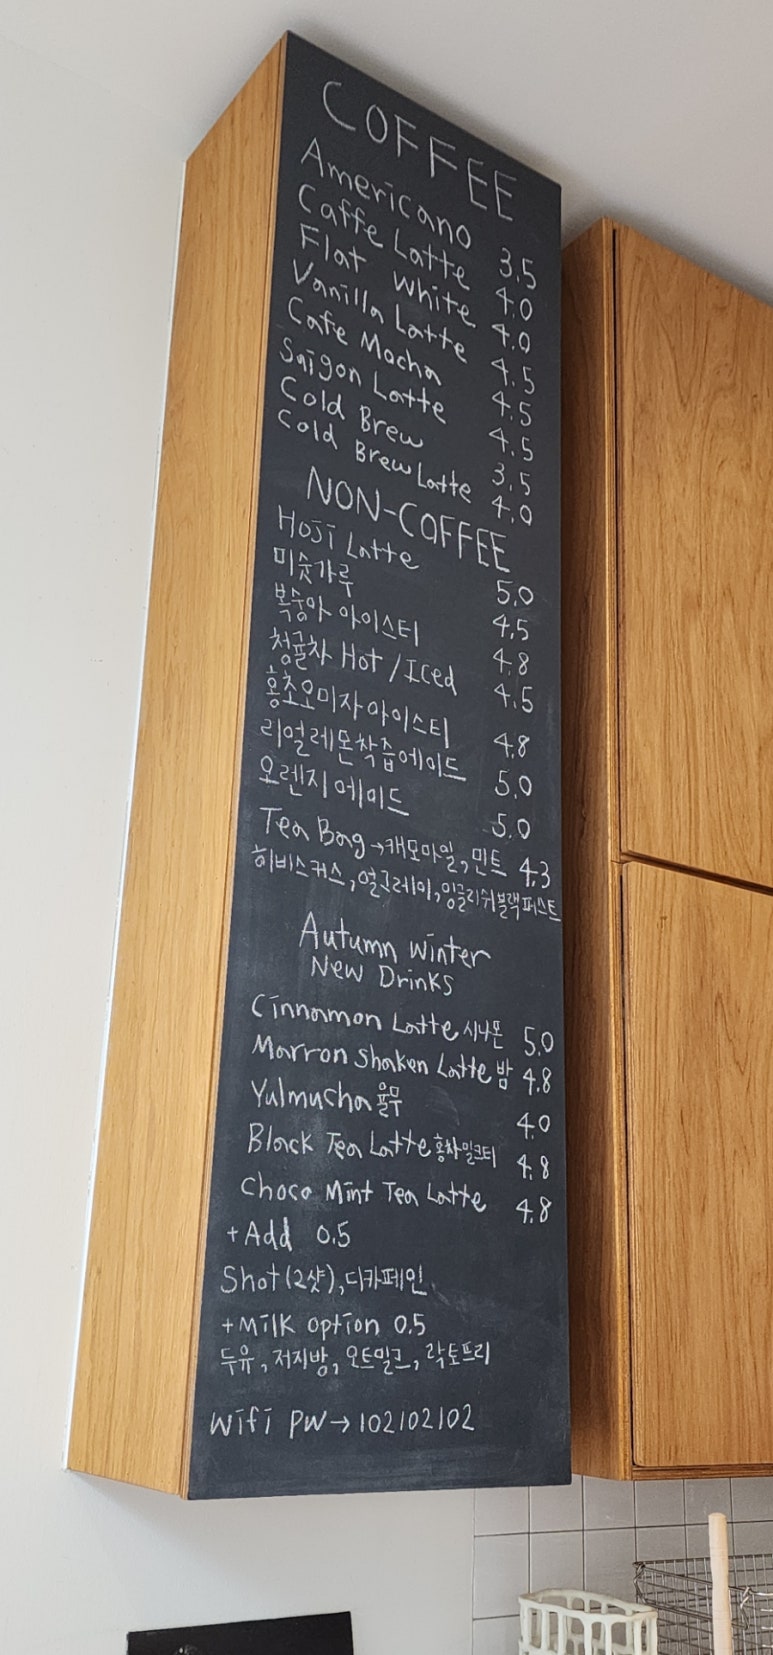 COFFEE
Americano 3.5
Caffe Latte 4.0
Flat White 4.0
Vanilla Latte 4.5
Cafe Mocha 4.5
Saigon Latte 4.5
Cold Brew 3.5
Cold Brew Latte 4.0
NON-COFFEE
Hoji Latte 5.0
미숫가루 4.5
복숭아 아이스티 4.8
청귤차 Hot / Iced 4.5
홍초오미자아이스티 4.8
리얼레몬착즙에이드 5.0
오렌지에이드 5.0
Tea Bag → 캐모마일, 민트 4.3
히비스커스, 얼그레이, 잉글리쉬블랙퍼스트
Autumn Winter
New Drinks
Cinnamon Latte 시나몬 5.0
Marron Shaken Latte 밤 4.8
Yulmucha 율무 4.0
Black Tea Latte 홍차밀크티 4.8
Choco Mint Tea Latte 4.8
+Add 0.5
Shot (2샷), 디카페인
+Milk option 0.5
두유, 저지방, 오트밀크, 락토프리
Wifi PW → 102102102